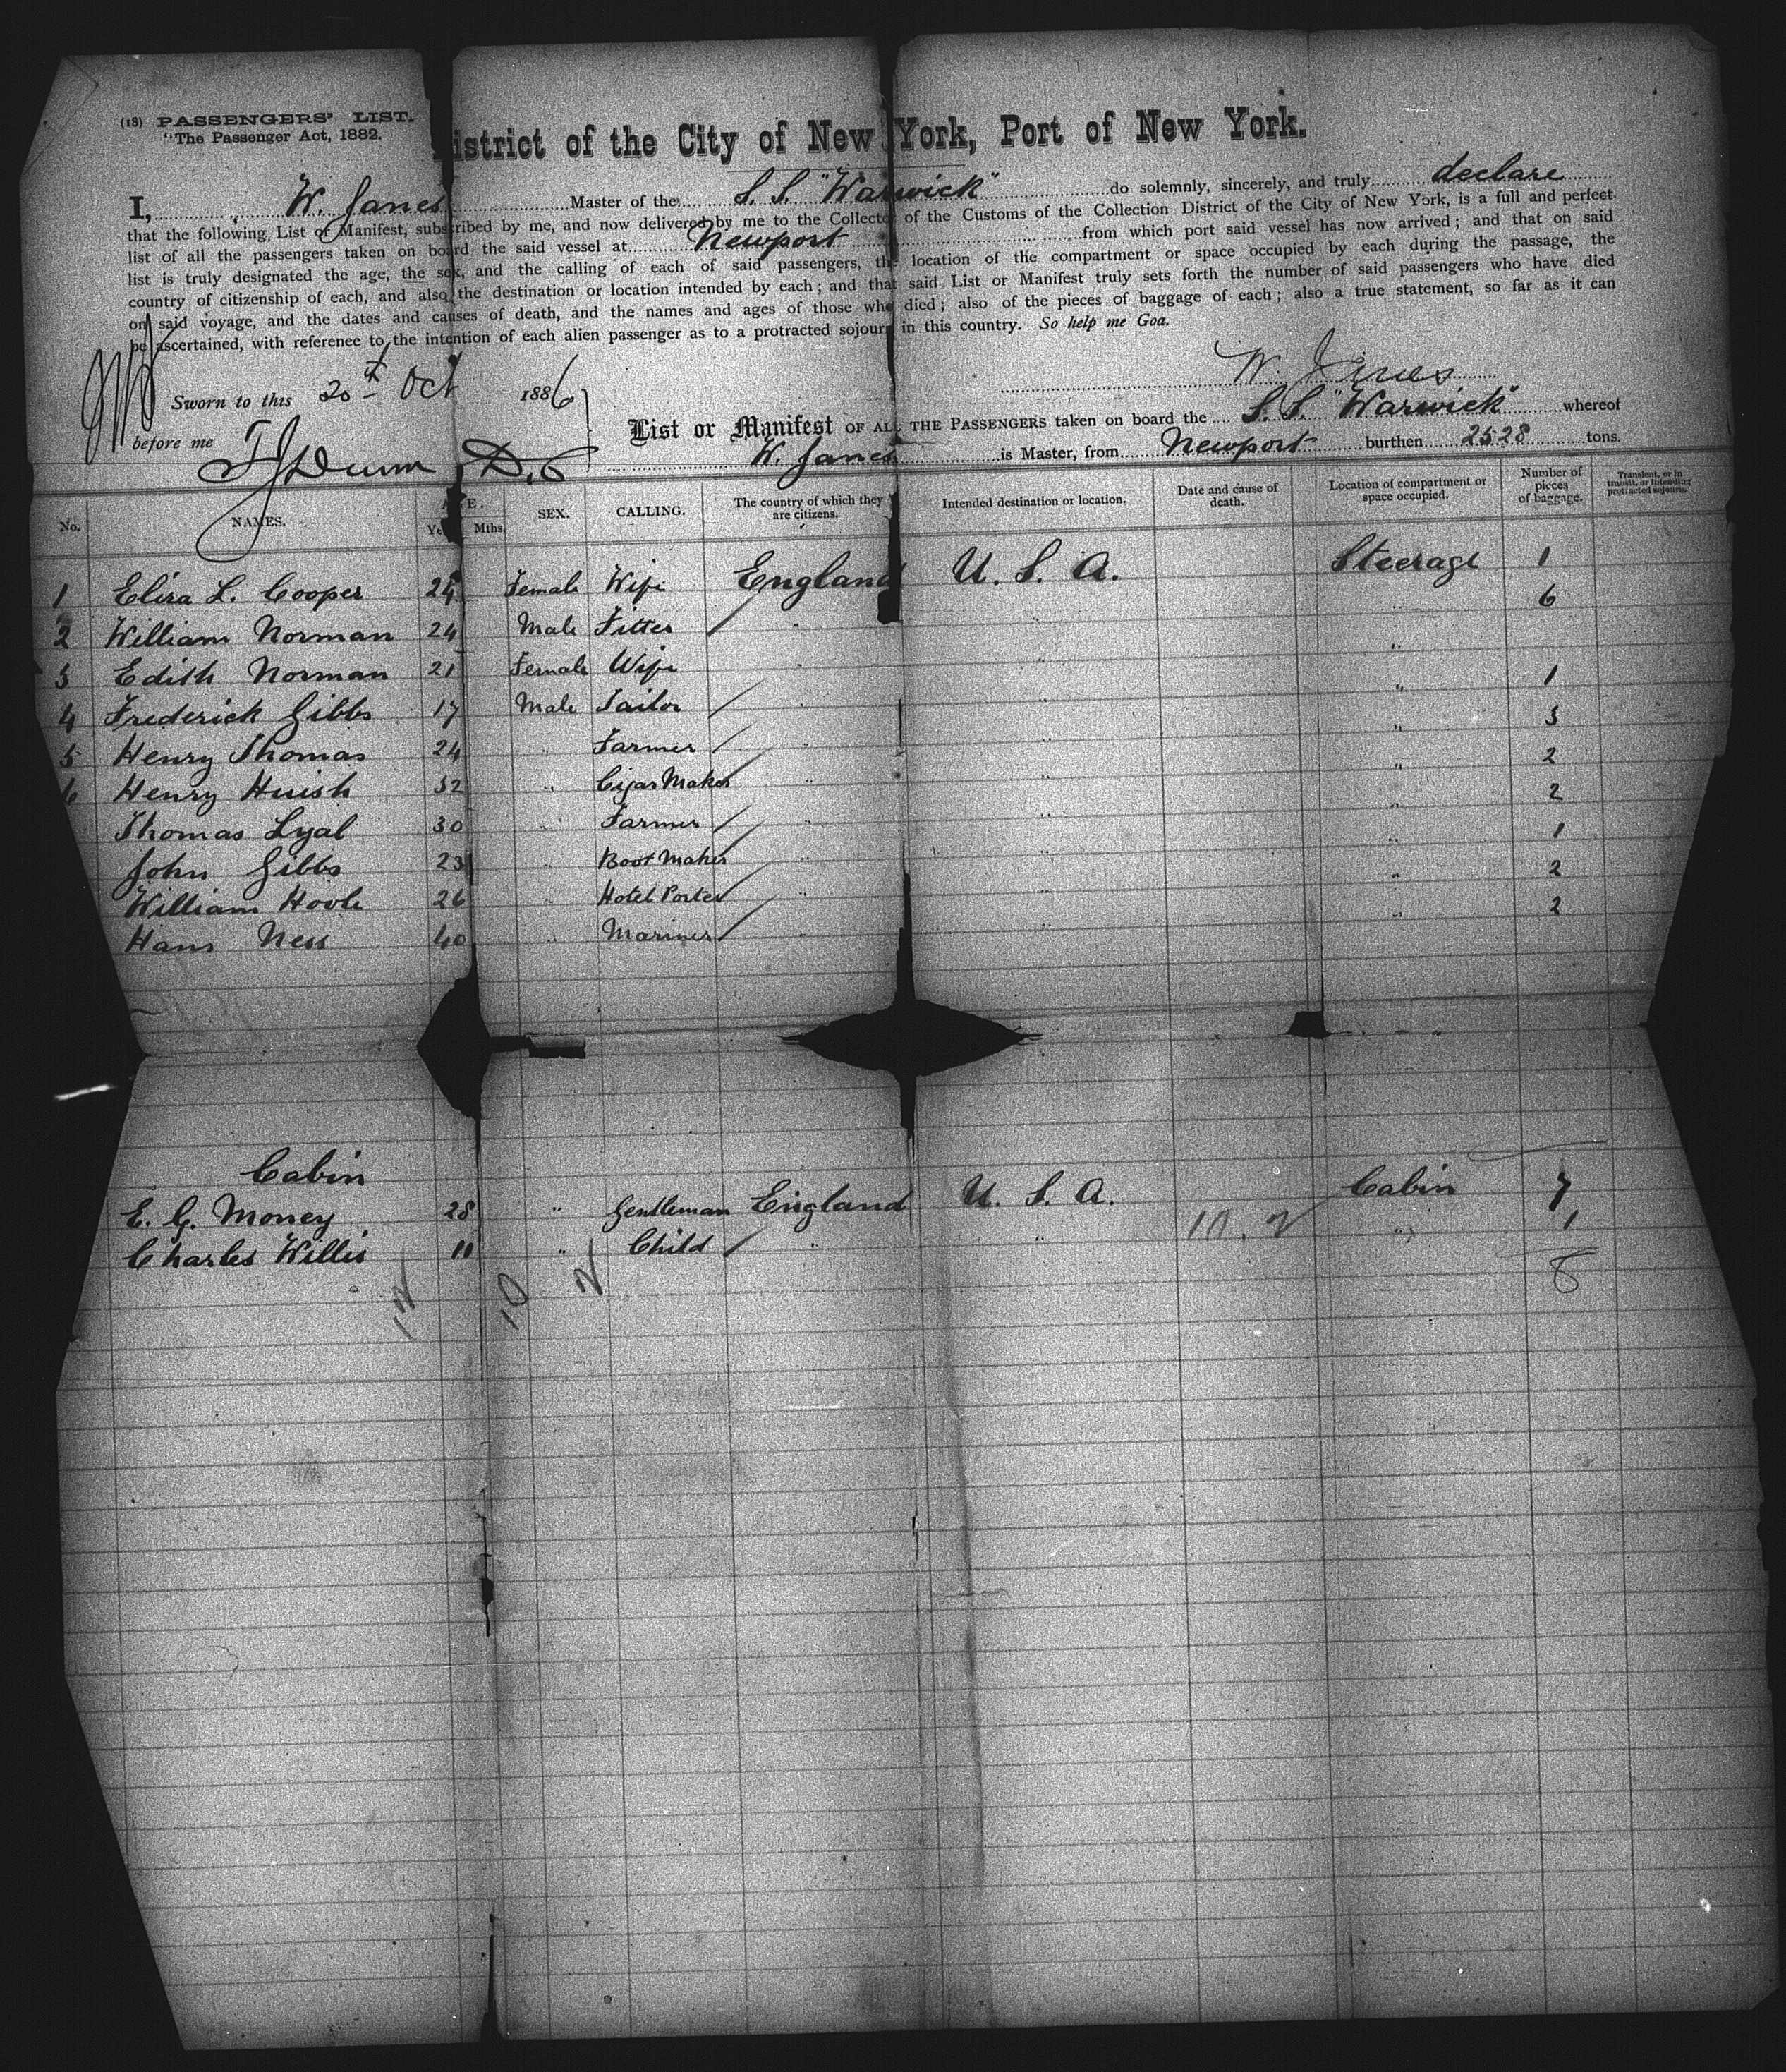 (18) PASSENGERS' LIST.
"The Passenger Act, 1882.
istrict of the City of New York, Port of New York.
I, W. Janes Master of the S. S. "Warwick" do solemnly, sincerely, and truly declare
that the following List or Manifest, subscribed by me, and now delivered by me to the Collector of the Customs of the Collection District of the City of New York, is a full and perfect
list of all the passengers taken on board the said vessel at Newport from which port said vessel has now arrived; and that on said
list is truly designated the age, the sex, and the calling of each of said passengers, the location of the compartment or space occupied by each during the passage, the
country of citizenship of each, and also the destination or location intended by each; and that said List or Manifest truly sets forth the number of said passengers who have died
on said voyage, and the dates and causes of death, and the names and ages of those who died; also of the pieces of baggage of each; also a true statement, so far as it can
be ascertained, with reference to the intention of each alien passenger as to a protracted sojourn in this country. So help me Goa.
W. Janes
Sworn to this 20th Oct 1886
before me
List or Manifest OF ALL THE PASSENGERS taken on board the S. S. "Warwick" whereof
W. Janes is Master, from Newport burthen 2528 tons.
No. NAMES. AGE. Mths. SEX. CALLING. The country of which they are citizens. Intended destination or location. Date and cause of death. Location of compartment or space occupied. Number of pieces of baggage. Transient, or in transit, or intending protracted sojourn.
1 Eliza L. Cooper 24 Female Wife England U. S. A. Steerage 1
2 William Norman 24 Male Fitter " " " 6
3 Edith Norman 21 Female Wife " " "
4 Frederick Gibbs 17 Male Tailor " " " 1
5 Henry Thomas 24 " Farmer " " " 3
6 Henry Huish 32 " Cigar Maker " " " 2
Thomas Lyal 30 " Farmer " " " 2
John Gibbs 23 " Boot Maker " " " 1
William Hoole 26 " Hotel Porter " " " 2
Hans Ness 40 " Mariner " " " 2
Cabin
E. G. Money 28 " Gentleman England U. S. A. Cabin 7
Charles Willis 11 " Child " " " 1
10. 2
8
12 10 2